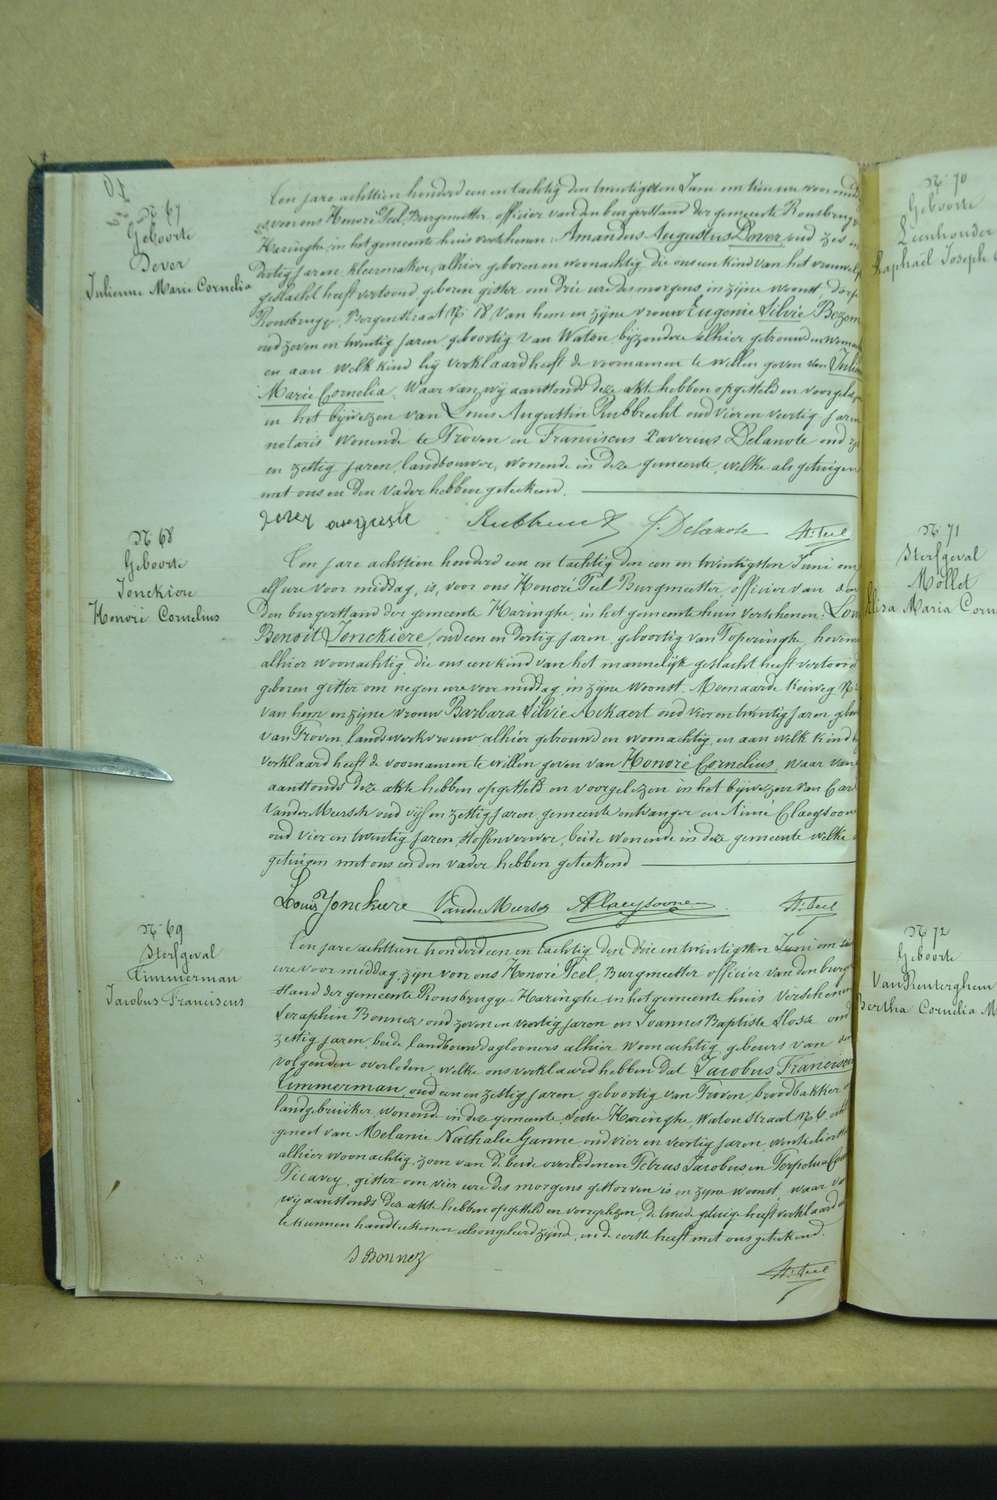 N° 67
Geboorte
Dever
Julienne Marie Cornelia
Een jare achttien honderd een en tachtig den twintigsten Juni om tien ure voor mid
is voor ons Honoré Feel, Burgmeester officier van den burgerstand der gemeente Rousbrugge
Haringhe, in het gemeente huis verschenen: Amandus Augustus Dever, oud zes en
Dertig jaren, kleermaker, alhier geboren en woonachtig, die ons een kind van het vrouwelyk
geslacht heeft vertoond, geboren gister om drie ure des morgens, in zijne woonst dorp
Rousbrugge, Bergenstraat N° 18, van hem en zijne vrouw Eugenie Silvie Bezem
oud zeven en twintig jaren geboortig van Waton, bijzondere alhier getrouwd en woon
en aan welk kind hij verklaard heeft de voornamen te willen geven van Julien
Marie Cornelia. Waar van wij aanstonds deze akte hebben opgesteld en voorgelezen
in het bijwezen van Louis Augustin Rubbrecht oud vier en veertig jaren
notaris wonende te Proven en Franciscus Xaverius Delanote oud
en zestig jaren, landbouwer, wonende in deze gemeente, welke als getuigen
met ons en den vader hebben geteekend.
dever auguste Rubbrecht f. Delanote H. Feel
N° 68
Geboorte
Jonckiere
Honoré Cornelius
Een jare achttien honderd een en tachtig den een en twintigsten Juni om
elf ure voor middag, is, voor ons Honoré Feel Burgmeester, officier van
Den burgerstand der gemeente Haringhe, in het gemeente huis verschenen: Lou
Benoit Jonckiere, oud een en dertig jaren, geboortig van Poperinghe, hoven
alhier woonachtig, die ons een kind van het mannelijk geslacht heeft vertoond
geboren gister om negen ure voor middag, in zijne woonst Moenaarde Keiweg N°
van hem en zijne vrouw Barbara Silvie Ackaert oud vier en twintig jaren, gebo
van Proven, landswerkvrouw alhier getrouwd en woonachtig, en aan welk kind hij
verklaard heeft de voornamen te willen geven van Honoré Cornelius, waar van
aanstonds deze akte hebben opgesteld en voorgelezen in het bijwezen van Car
VanderMeersch oud vijf en zestig jaren, gemeente ontvanger en Aimé Claeysoone
oud vier en twintig jaren, stoffenverwer, beide wonende in deze gemeente welke
getuigen met ons en den vader hebben geteekend
Louis Jonckiere VanderMeersch A Claeysoone H. Feel
N° 69
Sterfgeval
Timmerman
Jacobus Franciscus
Een jare achttien honderd een en tachtig den drie en twintigsten Juni om
ure voor middag, zijn voor ons Honoré Feel, Burgmeester officier van den burger
stand der gemeente Rousbrugge Haringhe in het gemeente huis verschenen
Seraphin Bonnez oud zeven en veertig jaren en Joannes Baptiste oud
zestig jaren, beide landbouwdagloners alhier woonachtig, gebuers van den
volgenden overleden, welke ons verklaard hebben dat Jacobus Franciscus
Timmerman, oud een en zestig jaren, geboortig van Proven, broodbakker en
landgebruiker, wonende in deze gemeente, sectie Haringhe, Waton straat N° 6, echt
genoot van Melanie Nathalie Ganne oud vier en veertig jaren, winkelierster
alhier woonachtig, zoon van de beide overledenen Petrus Jacobus en Perpetua
Ticavey, gister om vier ure des morgens gestorven is en zijne woonst, waar van
wij aanstonds deze akte hebben opgesteld en voorgelezen, de tweede getuige heeft verklaard
te kunnen handteekenen als ongeleerd zijnde, en de eerste heeft met ons geteekend.
S Bonnez H. Feel
N° 70
Geboorte
Lienhonder
Raphaël Joseph
N° 71
Sterfgeval
Mollet
Elisa Maria Corn
N° 72
Geboorte
VanRenterghem
Bertha Cornelia M